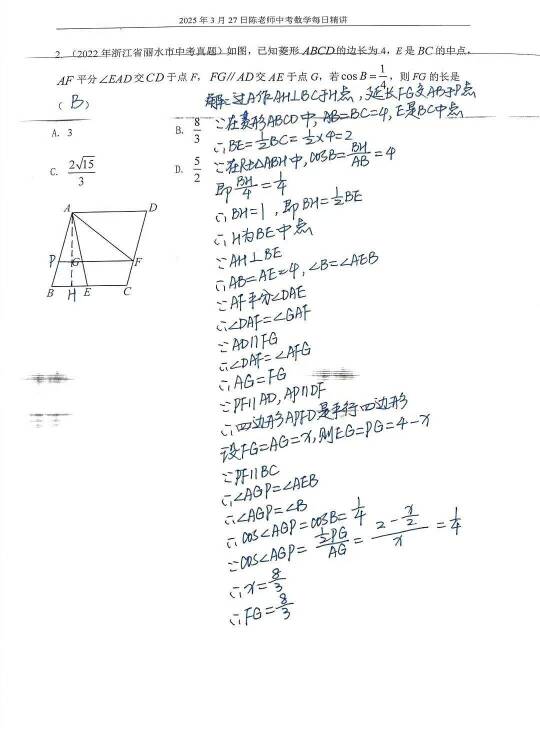 2025 年 3 月 27 日陈老师中考数学每日精讲
2. (2022 年浙江省丽水市中考真题) 如图，已知菱形 ABCD 的边长为 4，E 是 BC 的中点，
AF 平分∠EAD 交 CD 于点 F，FG∥AD 交 AE 于点 G，若 cos B = 1/4，则 FG 的长是
( B )
A. 3
B. 8/3
C. 2√15/3
D. 5/2
A
D
P
G
F
B
H
E
C
解：过A作AH⊥BC于H点，延长FG交AB于P点
∵在菱形ABCD中，AB=BC=4，E是BC中点
∴BE=1/2BC=1/2×4=2
∵在Rt△ABH中，cosB=BH/AB=4
即BH/4=1/4
∴BH=1，即BH=1/2BE
∴H为BE中点
∵AH⊥BE
∴AB=AE=4，∠B=∠AEB
∵AF平分∠DAE
∴∠DAF=∠GAF
∵AD∥FG
∴∠DAF=∠AFG
∴AG=FG
∵PF∥AD，AP∥DF
∴四边形APFD是平行四边形
设FG=AG=x，则EG=PG=4-x
∵PF∥BC
∴∠AGP=∠AEB
∴∠AGP=∠B
∴cos∠AGP=cosB=1/4
∵cos∠AGP=(1/2PG)/AG=(2-x/2)/x=1/4
∴x=8/3
∴FG=8/3